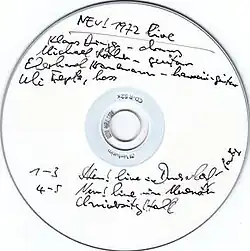 NEU! 1972 live
Klaus Dinger - drums
Michael Rother - guitar
Eberhard - hawaii-guitar
Uli bass
1-3 Neu! live in Düsseldorf
4-5 Neu! live in Münster
University Hall